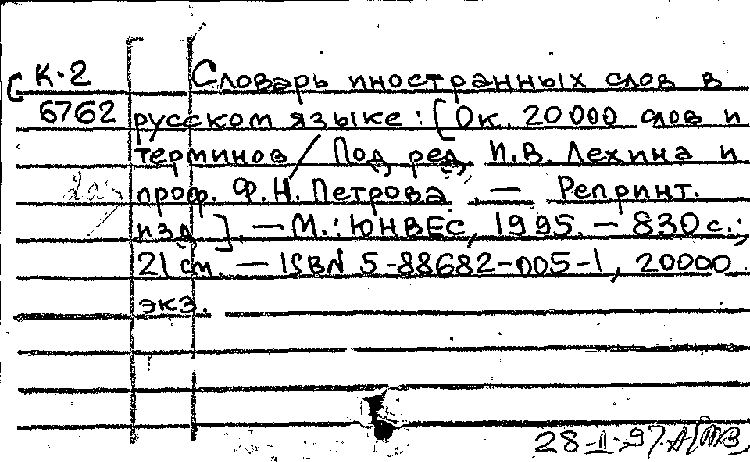 К-2 Словарь иностранных слов в
6762 русском языке: [Ок. 20000 слов и
терминов / Под ред. И.В. Лехина и
проф. Ф.Н. Петрова. — Репринт.
изд.]. — М.: ЮНВЕС, 1995. — 830 с.;
21 см. — ISBN 5-88682-005-1, 20000
экз.
28-II-97